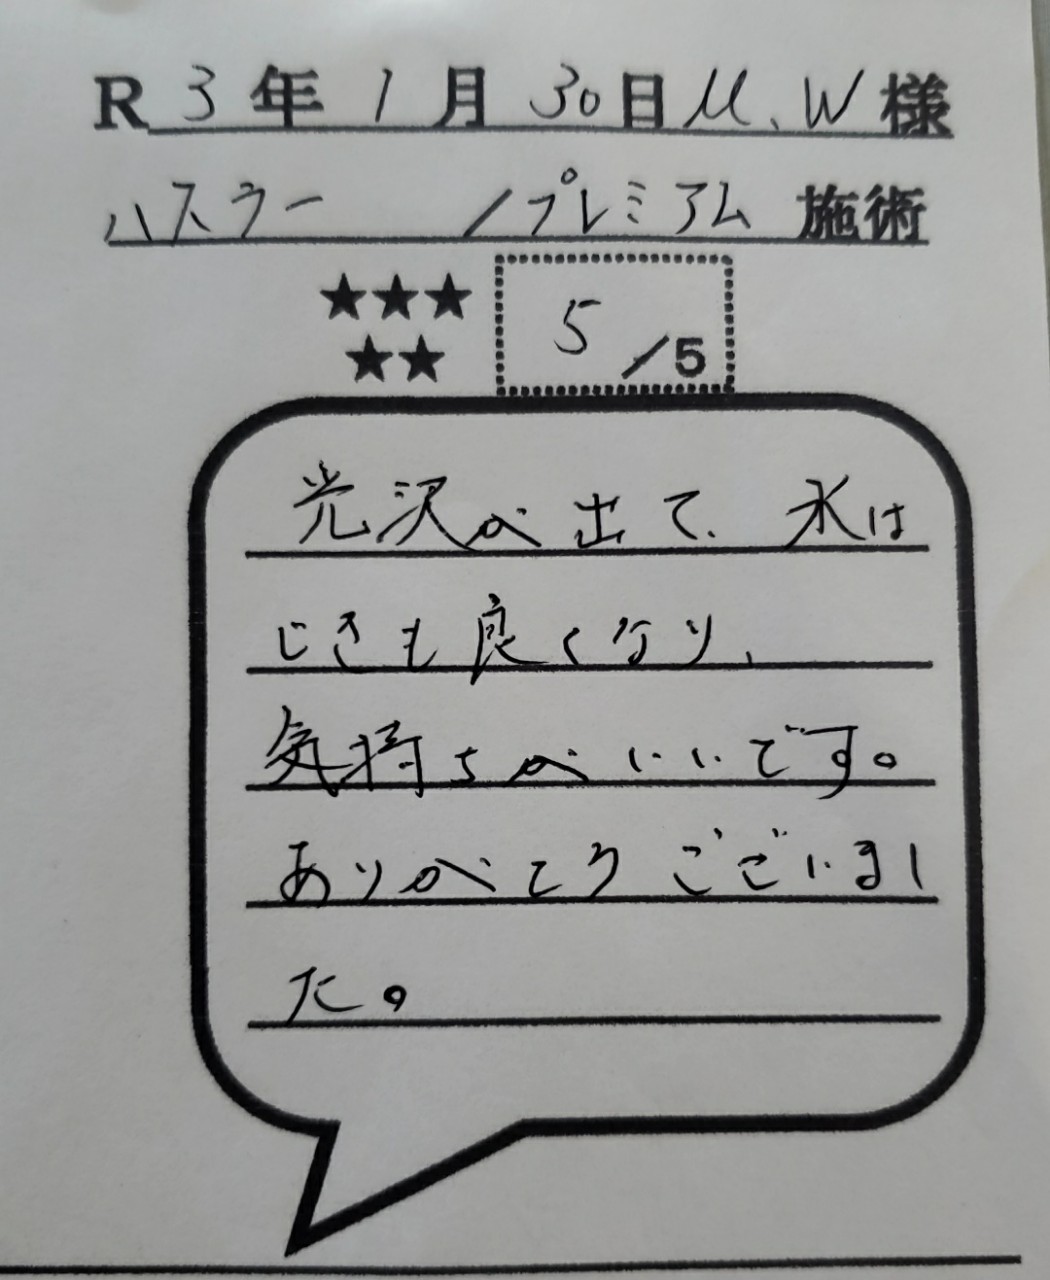 R 3年 1月 30日 M.W 様
ハスラー /プレミアム 施術
★★★
★★
5/5
光沢が出て、水は
じきも良くなり、
気持ちがいいです。
ありがとうございまし
た。